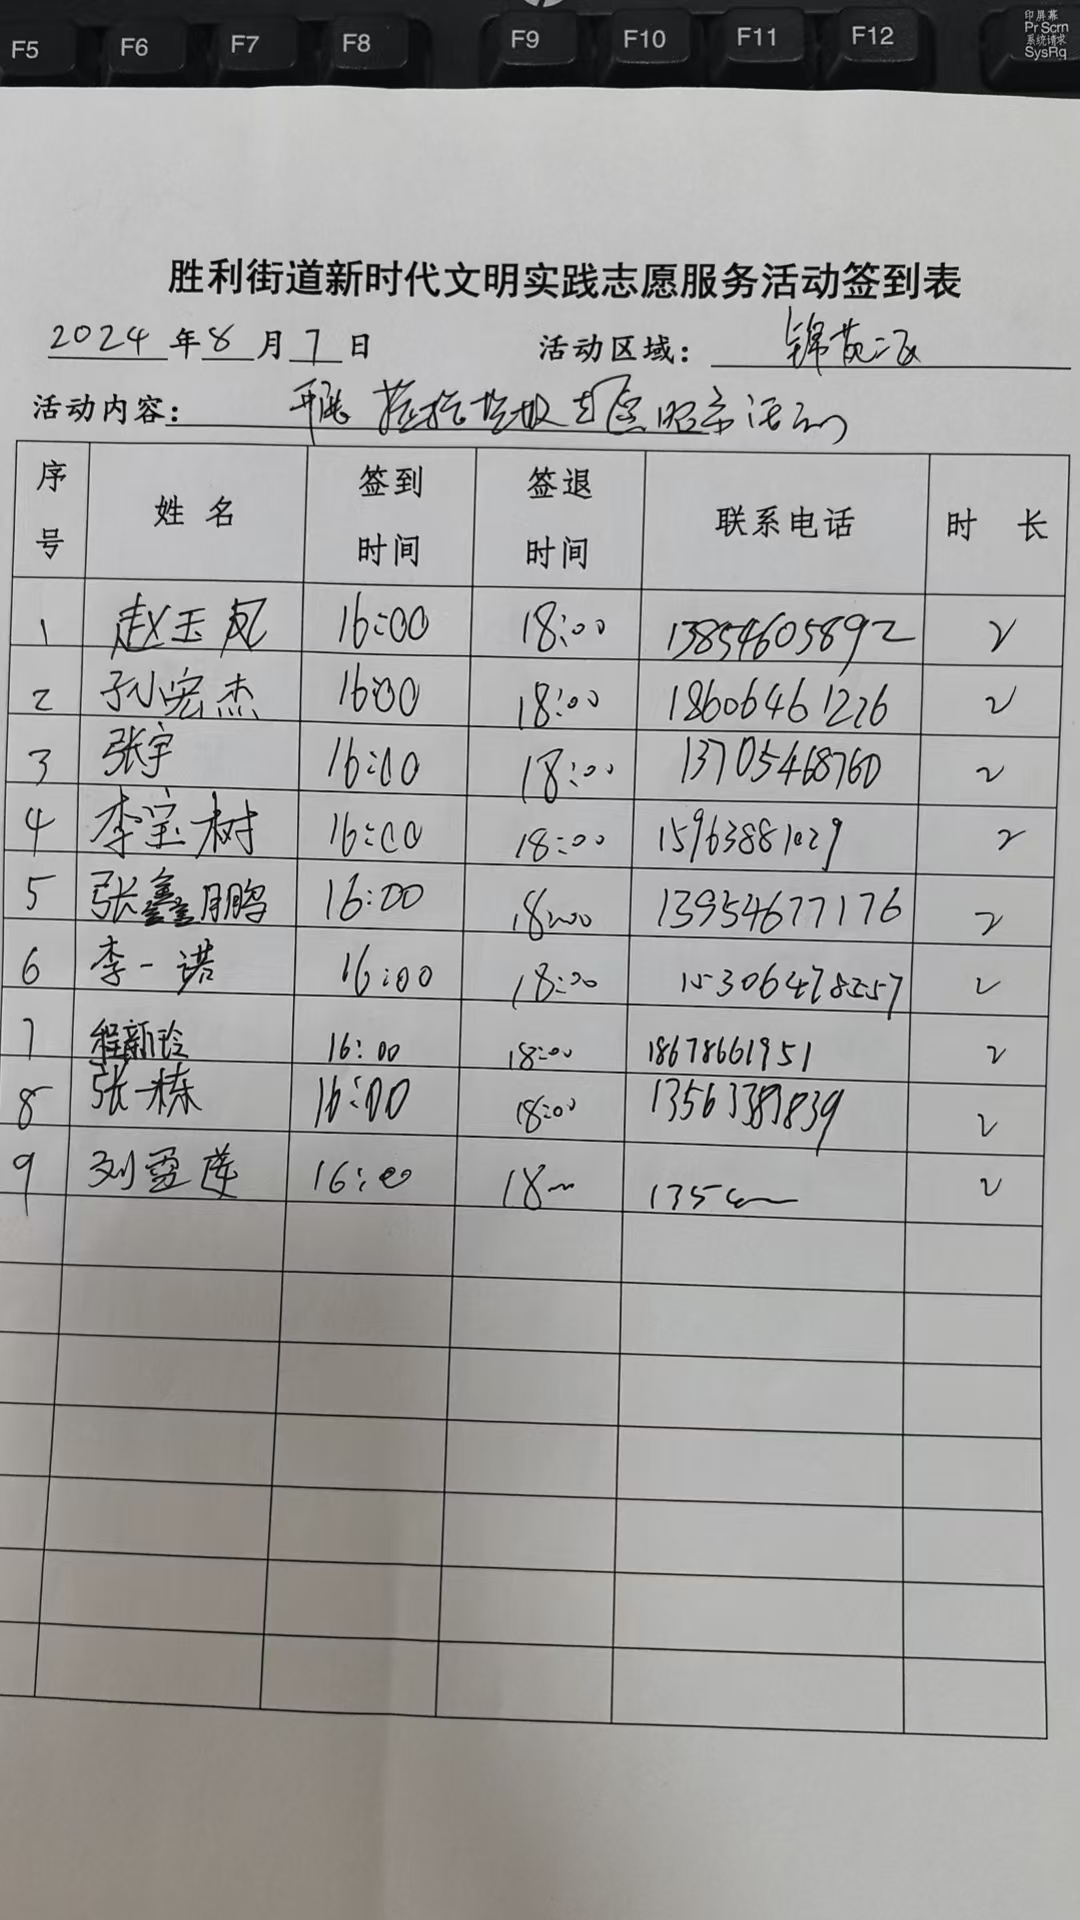 F5 F6 F7 F8 F9 F10 F11 F12 印屏幕
PrScrn
系统请求
SysRq
胜利街道新时代文明实践志愿服务活动签到表
2024年8月7日 活动区域：锦苑二区
活动内容：开展 捡拾垃圾 志愿服务活动
序号 姓名 签到时间 签退时间 联系电话 时长
1 赵玉凤 16:00 18:00 13854605892 2
2 孙宏杰 16:00 18:00 18606461226 2
3 张宇 16:00 18:00 13705468760 2
4 李宝树 16:00 18:00 15963881029 2
5 张鑫鹏 16:00 18:00 13954677176 2
6 李一诺 16:00 18:00 15306478557 2
7 程新玲 16:00 18:00 18678661951 2
8 张一栋 16:00 18:00 2
9 刘雪莲 16:00 18 135 2